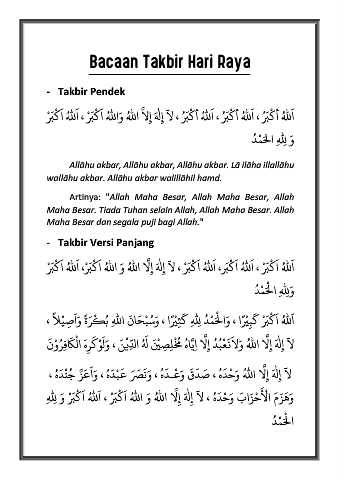 Bacaan Takbir Hari Raya
- Takbir Pendek
اَللهُ اَكْبَرُ ، اَللهُ اَكْبَرُ ، اَللهُ اَكْبَرُ ، لَآ إِلٰهَ إِلاَّ اللهُ وَاللهُ اَكْبَرْ ، اَللهُ اَكْبَرْ
وَ لِلّٰهِ الْحَمْدُ
Allāhu akbar, Allāhu akbar, Allāhu akbar. Lā ilāha illallāhu
wallāhu akbar. Allāhu akbar walillāhil hamd.
Artinya: "Allah Maha Besar, Allah Maha Besar, Allah
Maha Besar. Tiada Tuhan selain Allah, Allah Maha Besar. Allah
Maha Besar dan segala puji bagi Allah."
- Takbir Versi Panjang
اَللهُ اَكْبَرْ ، اَللهُ اَكْبَر، اَللهُ اَكْبَرْ ، لآ إِلٰهَ إِلَّا اللهُ وَ اللهُ اَكْبَرْ، اَللهُ اَكْبَرْ
وَلِلّٰهِ الْحَمْدُ
اَللهُ اَكْبَرْ كَبِيْرًا ، وَالْحَمْدُ لِلّٰهِ كَثِيْرًا ، وَسُبْحَانَ اللهِ بُكْرَةً وَاَصِيْلاً ،
لآ إِلٰهَ إِلَّا اللهُ وَلاَ نَعْبُدُ إِلَّا إِيَّاهُ مُخْلِصِيْنَ لَهُ الدِّيْنَ ، وَلَوْ كَرِهَ الْكَافِرُوْنَ
لآ إِلٰهَ إِلَّا اللهُ وَحْدَهُ ، صَدَقَ وَعْدَهُ ، وَنَصَرَ عَبْدَهُ ، وَاَعَزَّ جُنْدَهُ ،
وَهَزَمَ الْأَحْزَابَ وَحْدَهُ ، لآ إِلٰهَ إِلَّا اللهُ وَ اللهُ اَكْبَرْ ، اَللهُ اَكْبَرْ وَ لِلّٰهِ
الْحَمْدُ